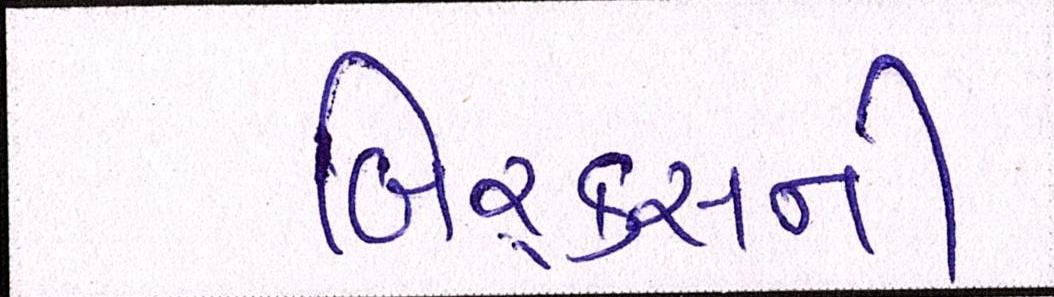 બિર્‍કસની